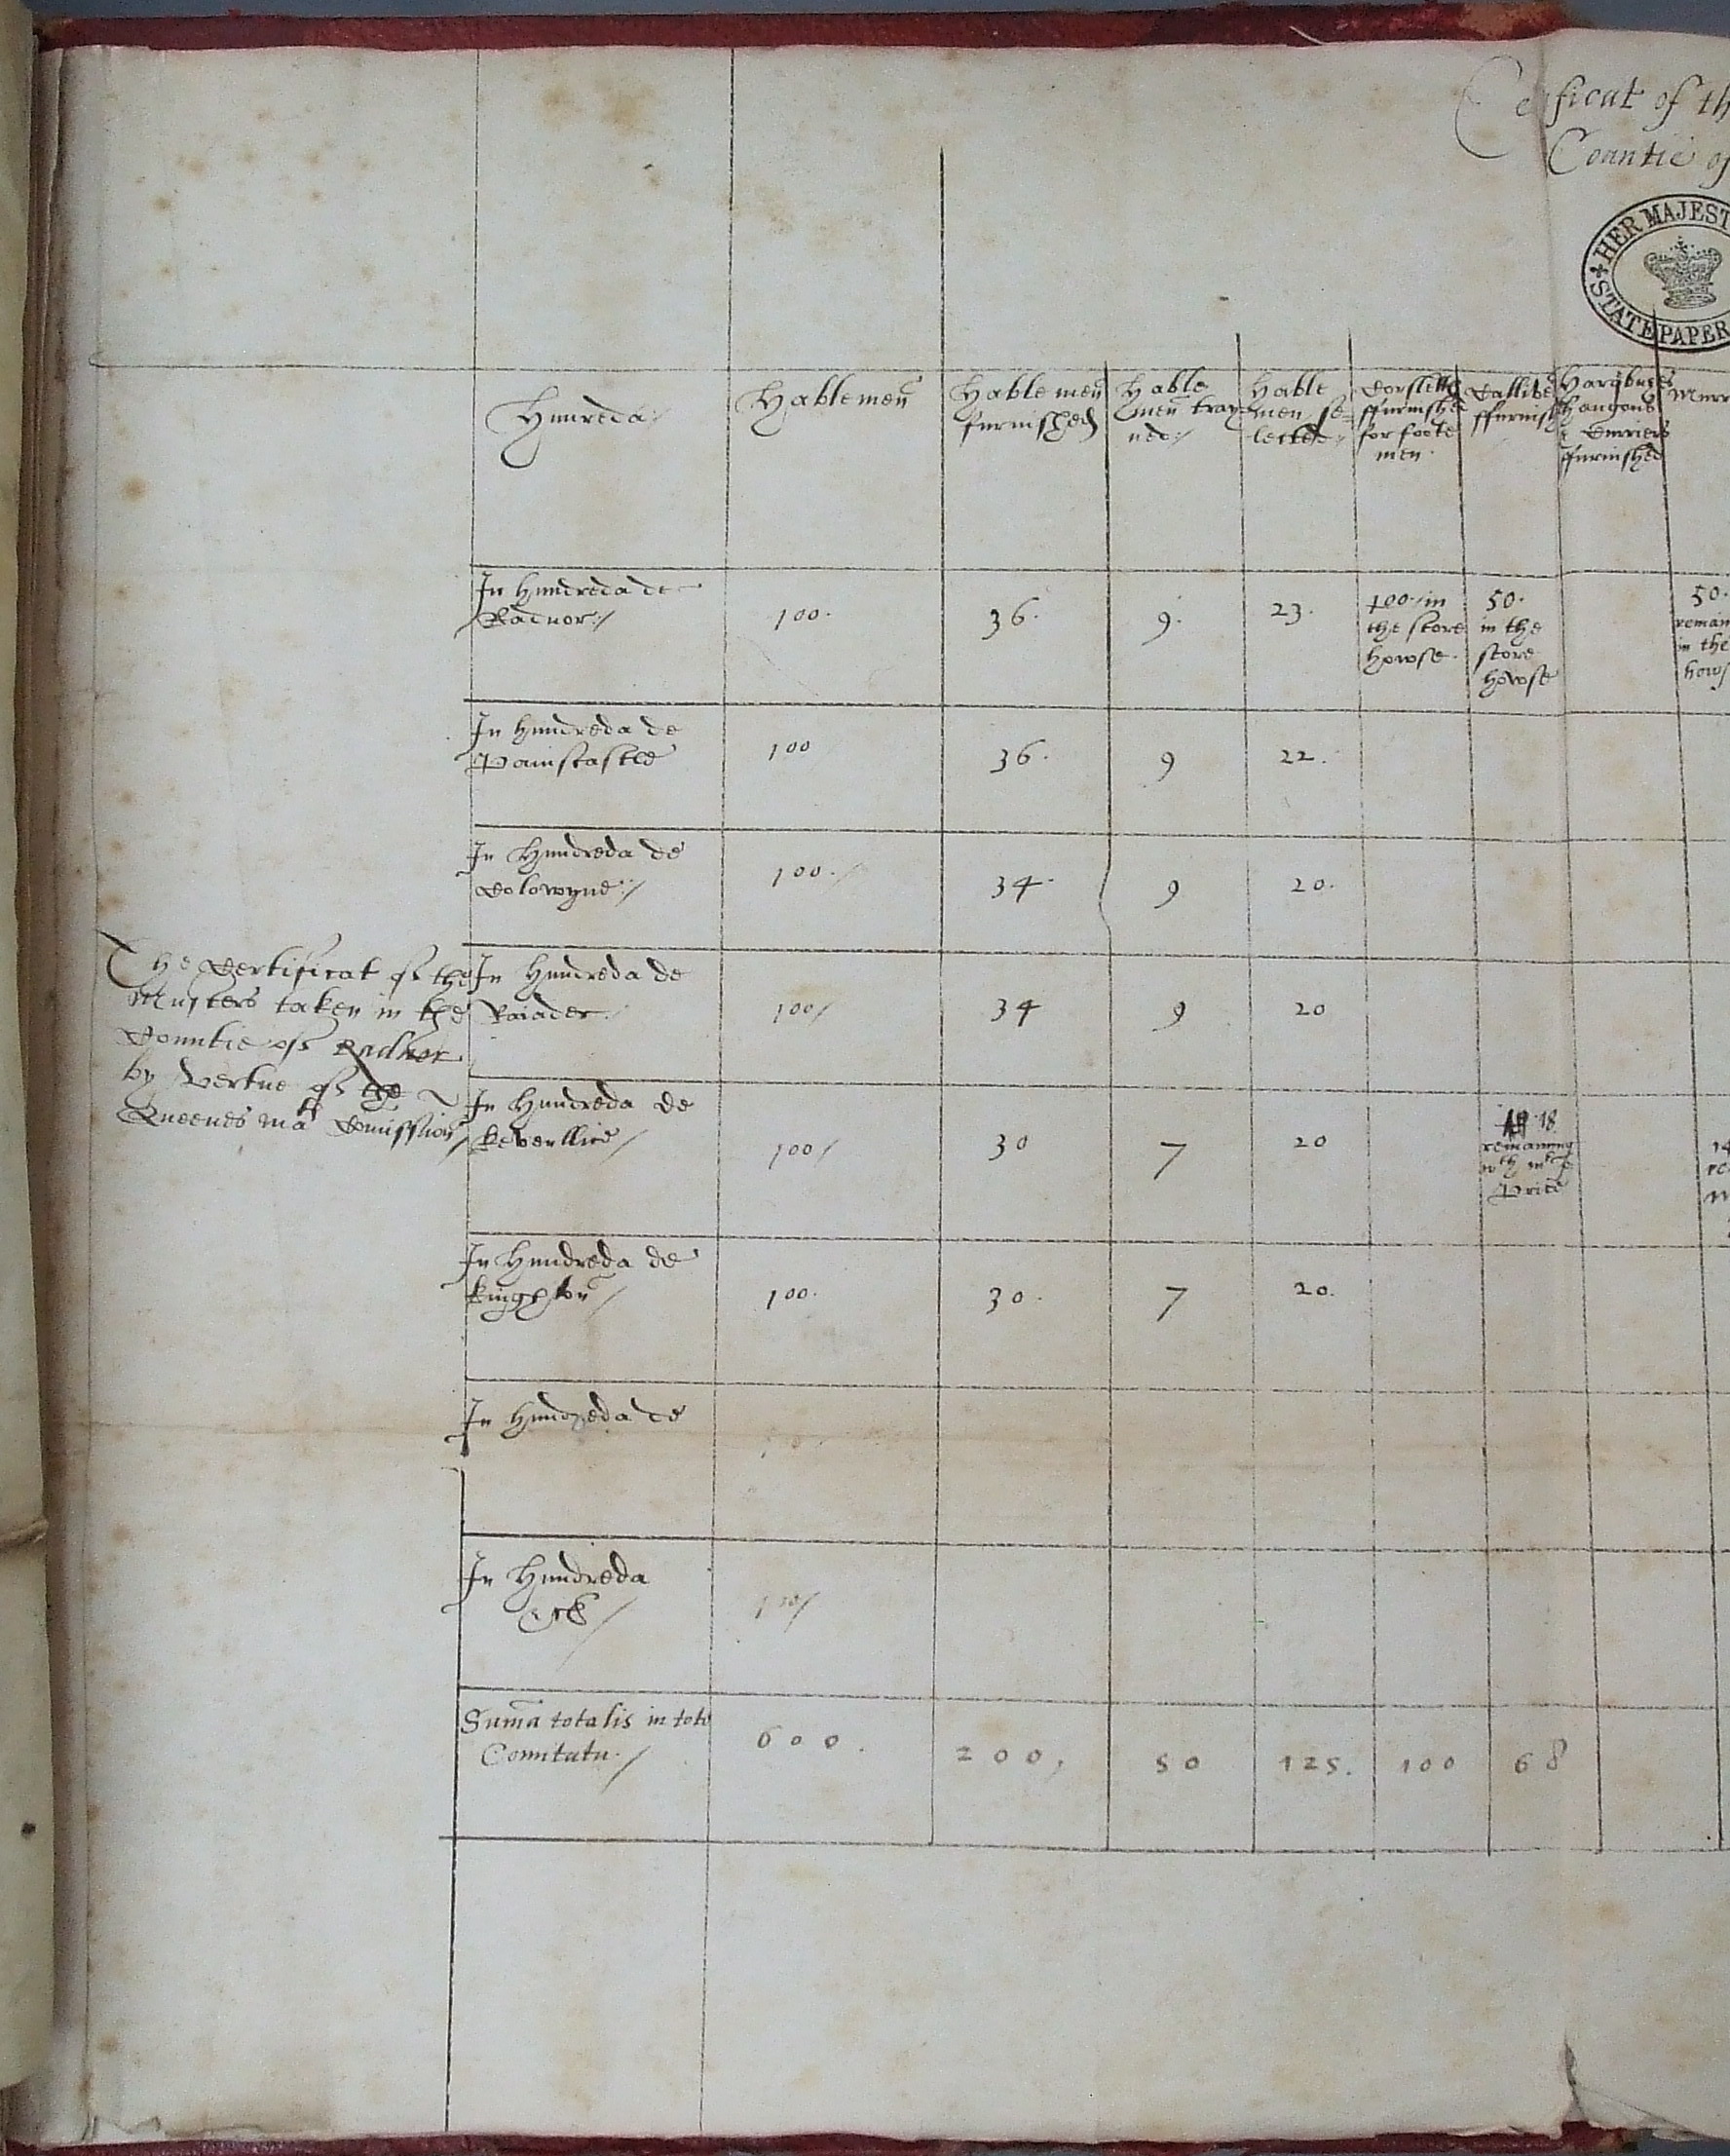 Certificat of th
Countie of
HER MAJEST
STATE PAPER
Hunreda:/
Hable men
Hable men
furnished
Hable
men tray=
ned:/
Hable
men se=
lected:/
Corslettes
ffurnished
for foote
men.
Callivers
ffurnish
Harqbuzes
Murr
ffurnished
In Hundreda de
Radnor:/
100.
36.
9.
23.
100. in
the store
howse.
50.
in the
store
howse
50.
remain
in the
hows
In Hundreda de
Paincastle
100
36.
9
22.
In Hundreda de
Colowyne:/
100./
34.
9
20.
The Certificat of the
Musters taken in the
Countie of Radnor
by Vertue of the
Queenes mats Comission/
In Hundreda de
Raiader./
100/
34
9
20
In Hundreda de
kevenllice/
100/
30
7
20
18.
remaining
wth mr
Price
14
re
m
In Hundreda de
kinghton/
100.
30.
7
20.
In Hundreda de
In Hundreda
100/
Suma totalis in toto
Comitatu./
600.
200,
50
125.
100
68